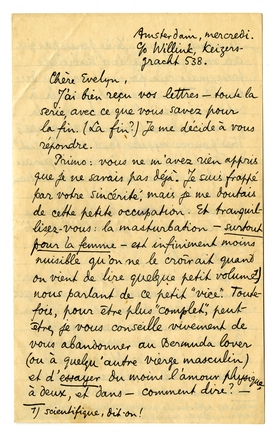 Amsterdam, mercredi.
c/o Willink, Keizers-
gracht 538.
Chère Evelyn,
J'ai bien reçu vos lettres – toute la
serie, avec ce que vous savez pour
la fin. (La fin?) Je me décide à vous
répondre.
Primo: vous ne m'avez rien appris
que je ne savais pas déjà. Je suis frappé
par votre sincérité, mais je me doutais
de cette petite occupation. Et tranquil-
lisez-vous: la masturbation – surtout
pour la femme – est infiniment moins
nuisible qu'on ne le croirait quand
on vient de lire quelque petit volume 1)
nous parlant de ce petit "vice". Toute-
fois, pour être plus "complet", peut-
être, je vous conseille vivement de
vous abandonner au Bermuda lover
(ou à quelqu'autre vierge masculin)
et d'essayer du moins l'amour physique
à deux, et dans – comment dire? –
1) scientifique, dit-on!